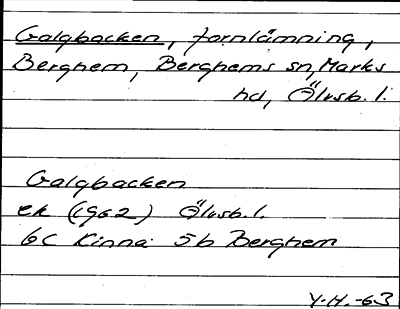 Galgbacken, fornlämning,
Berghem, Berghems sn, Marks
hd, Älvsb. l.
Galgbacken
ek (1962) Älvsb. l.
6C Kinna 5h Berghem
Y.H. -63